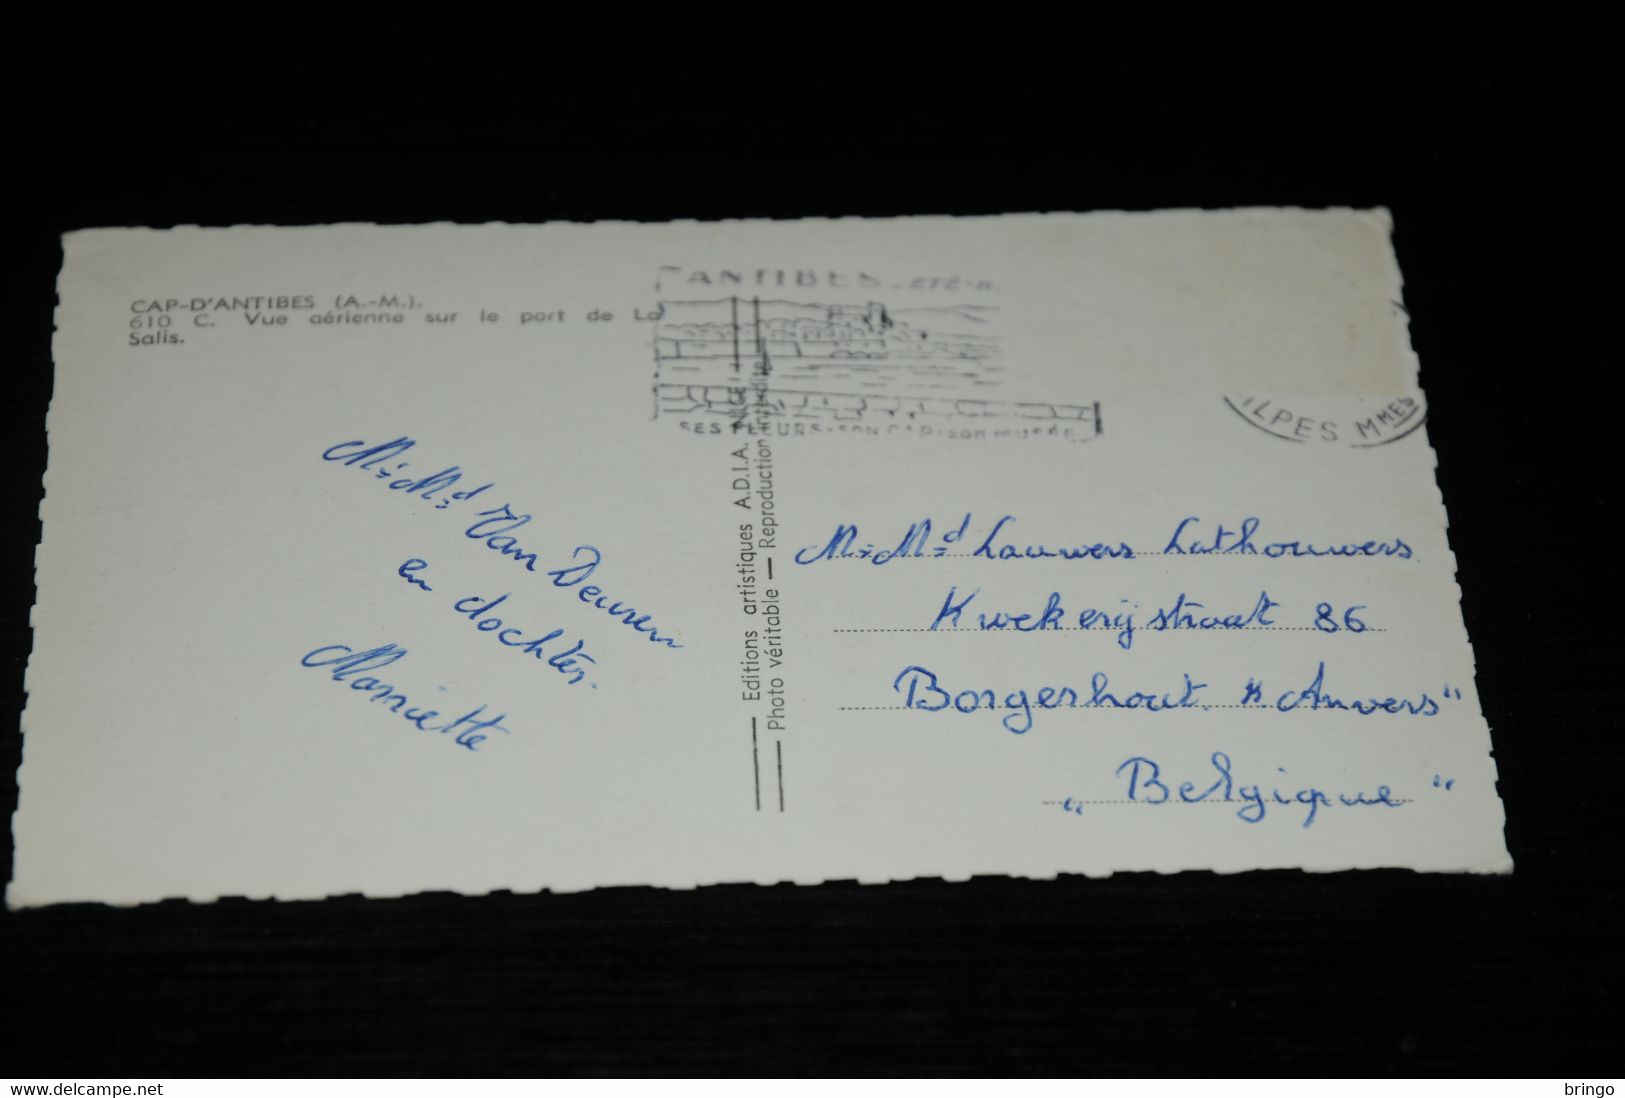 CAP-D'ANTIBES (A.-M.).
610 C. Vue aérienne sur le port de La
Salis.
ANTIBES - ETÉ-
SES FLEURS - SON CAP - SON MUSÉE
ALPES MMES
Mr Md Van Deuren
en dochter.
Marriette
Editions artistiques A.D.I.A. NICE
Photo véritable — Reproduction interdite
Mr Md Lauwers Lathouwers
Kwekerijstraat 86
Borgerhout "Anvers"
"Belgique"
www.delcampe.net
bringo